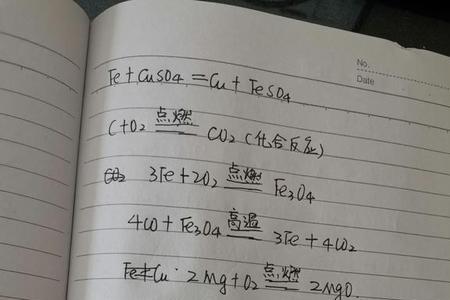 No.
Date
Fe+CuSO4=Cu+FeSO4
C+O2 点燃 CO2 (化合反应)
3Fe+2O2 点燃 Fe3O4
4CO+Fe3O4 高温 3Fe+4CO2
2Mg+O2 点燃 2MgO